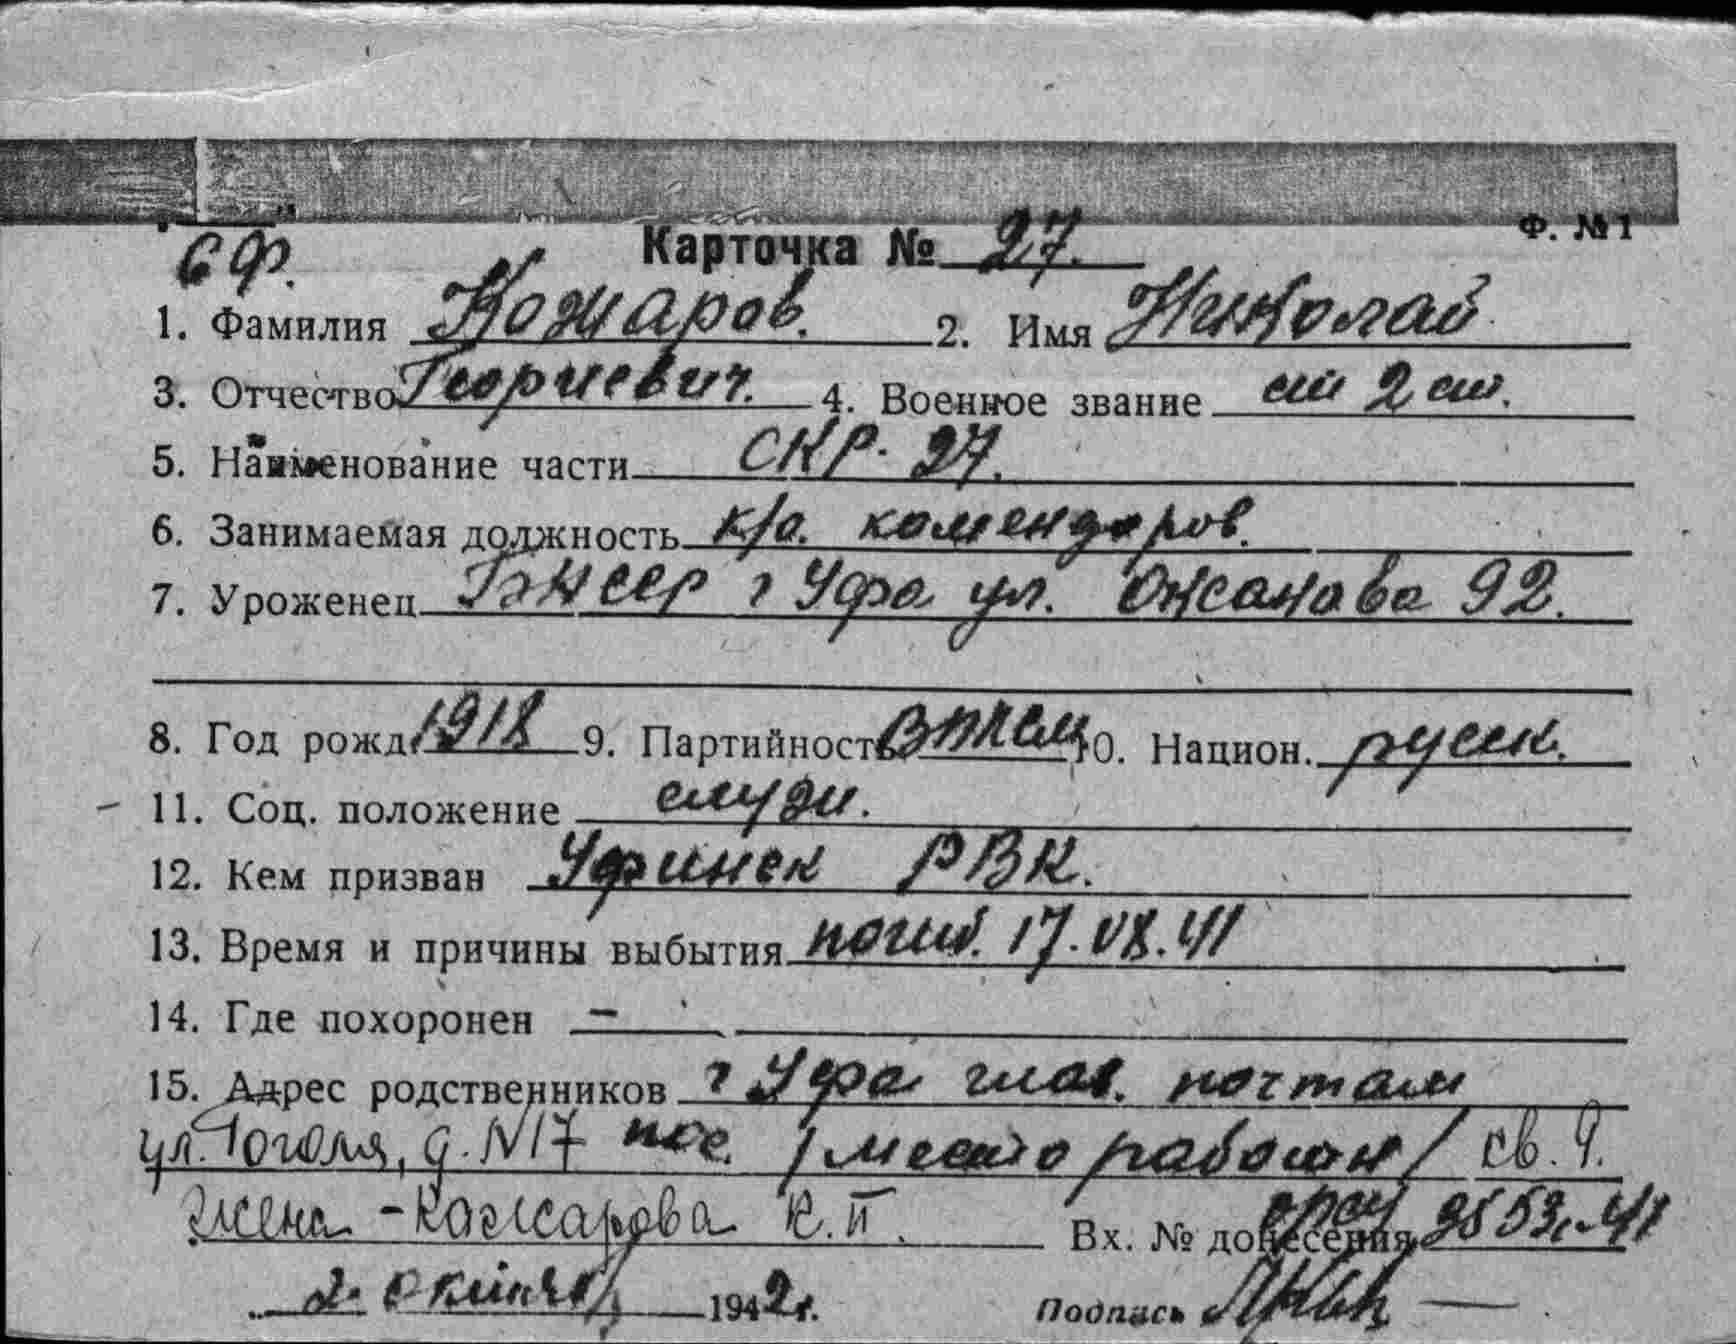 СФ.
Карточка № 27. Ф. №1
1. Фамилия Кожаров. 2. Имя Николай
3. Отчество Георгиевич. 4. Военное звание ст 2 ст.
5. Наименование части СКР-27.
6. Занимаемая должность к/о. комендоров.
7. Уроженец БАССР г Уфа ул. 92.
8. Год рожд. 1918 9. Партийность 10. Национ. русск.
11. Соц. положение служ.
12. Кем призван Уфимск РВК.
13. Время и причины выбытия погиб. 17.VIII.41
14. Где похоронен –
15. Адрес родственников г Уфа глав. почтам
ул. Гоголя, д. N17 /место работы/ св. 9.
Жена - Кожарова К.П. Вх. № донесения 9853с-41
2. октября 1942г. Подпись